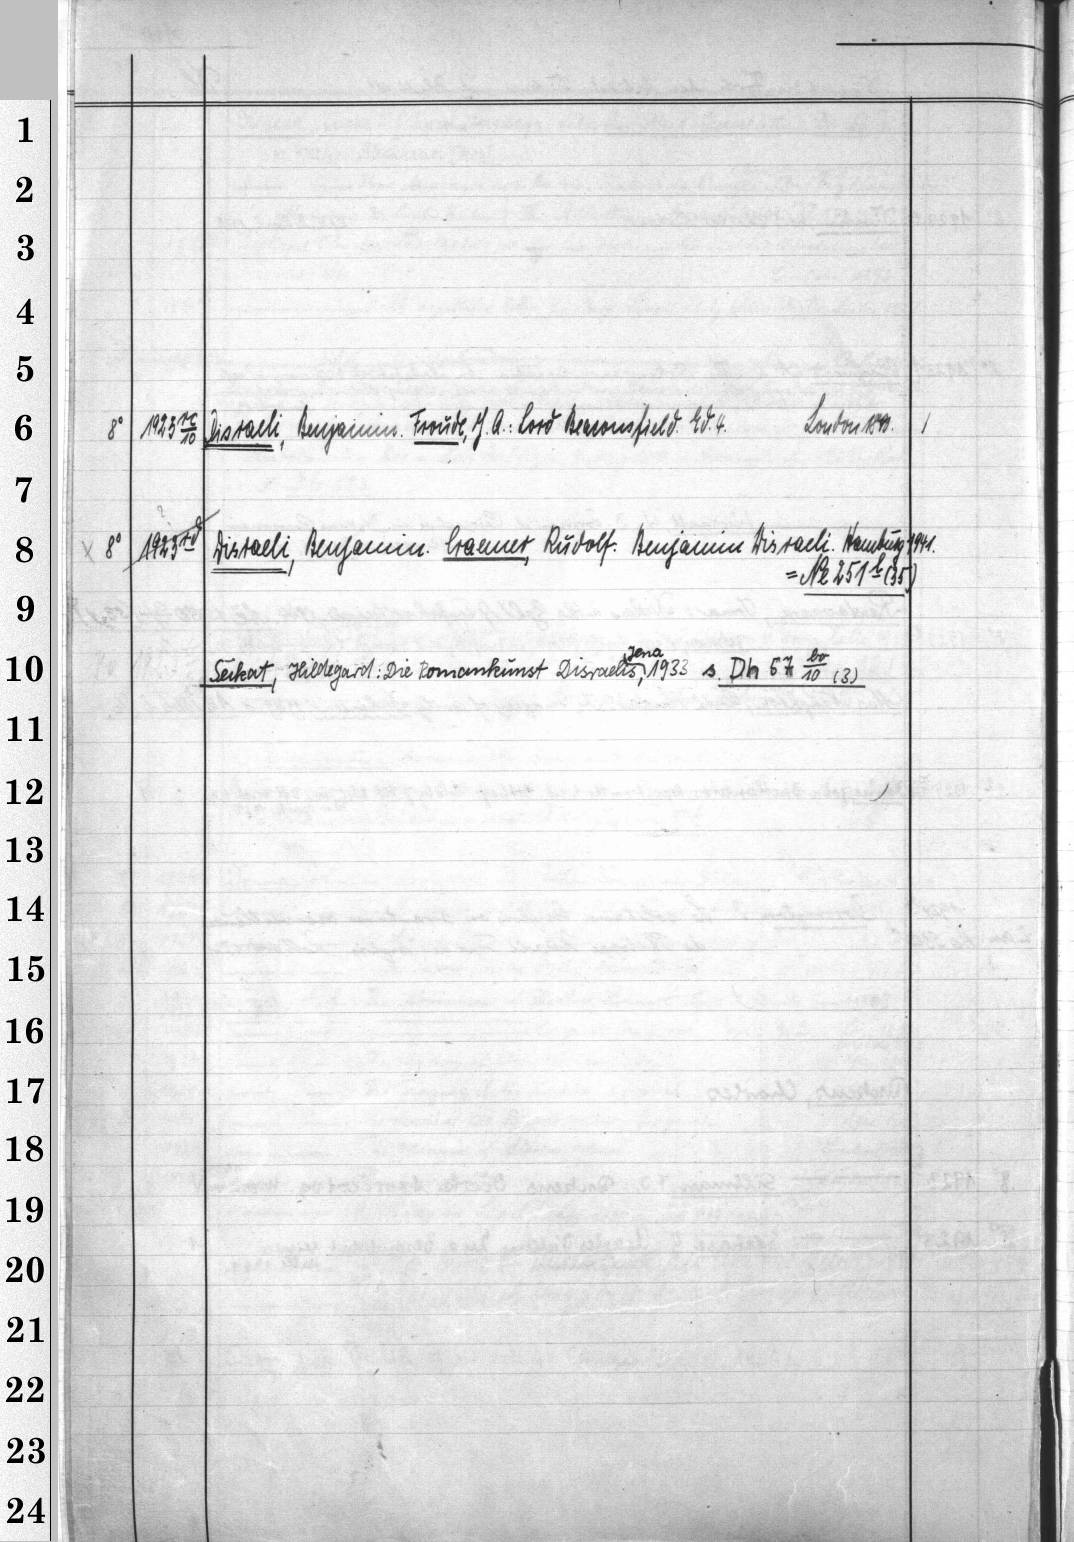 1
2
3
4
5
6
8° 1923 Disraeli, Benjamin. Froude, J. A.: Lord Beaconsfield. Ed. 4. London
7
8
8° Disraeli, Benjamin. Craemer, Rudolf. Benjamin Disraeli. Hamburg 1941.
= Ne 251 (35)
9
10
Seikat, Hildegard: Die Romankunst Disraelis, Jena 1933 s. Dh 67 bo/10 (3)
11
12
13
14
15
16
17
18
19
20
21
22
23
24